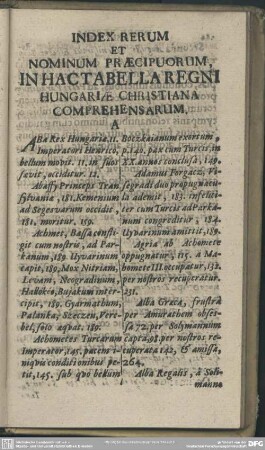 INDEX RERUM
ET
NOMINUM PRÆCIPUORUM,
IN HAC TABELLA REGNI
HUNGARIÆ CHRISTIANA
COMPREHENSARUM.
A
ABa Rex Hungariæ, 11.
Imperatori Henrico,
bellum movit. 11. in suos
sævit, occiditur. 12.
Abaffy Princeps Tran-
sylvaniæ, 181. Kemenium
ad Segesvarum occidit,
181. moritur, 189.
Achmet, Bassa consti-
git cum nostris, ad Par-
kanum, 189. Uyvarinum
capit, 189. Mox Nitriam,
Levam, Neogradinum,
Hallokö, Bujakum inter-
cipit, 189. Gyarmathum,
Palanka, Szeczen, Vere-
belt, solo æquat, 189.
Achometes Turcarum
Imperator, 145. pacem
iniquis conditionibus pe-
tit, 145. sub quo bellum
Botzkaianum exorsum,
p. 140. pax cum Turcis, in
XX. annos conclusa, 149.
Adamus Forgacz, Vi-
segradi duo propugnacu-
la ademit, 183. infelici-
ter cum Turcis ad Parka-
num congreditur, 184.
Uyvarinum amittit, 189.
Agria ab Achomete
oppugnatur, 115. a Ma-
homete III. occupatur, 132.
per nostros recuperatur,
211.
Alba Græca, frustra
per Amurathem obses-
sa 72. per Solymannum
capta, 98. per nostros re-
cuperata 142, & amissa,
264.
Alba Regalis, à Soli-
manno